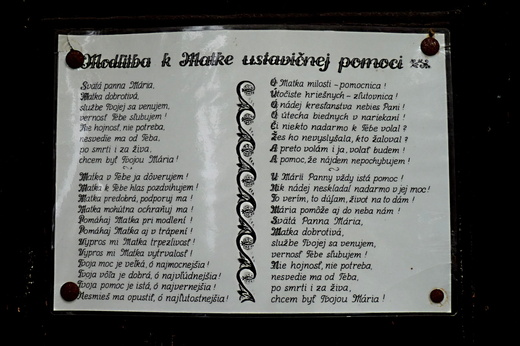 Modlitba k Matke ustavičnej pomoci
Svätá panna Mária,
Matka dobrotivá,
službe Tvojej sa venujem,
vernosť Tebe sľubujem!
Nie hojnosť, nie potreba,
nesvedie ma od Teba,
po smrti i za živa,
chcem byť Tvojou Mária!
Matka v Teba ja dôverujem!
Matka k Tebe hlas pozdvihujem!
Matka predobrá, podporuj ma!
Matka mohútna ochraňuj ma!
Pomáhaj Matka pri modlení!
Pomáhaj Matka aj v trápení!
Vypros mi Matka trpezlivosť!
Vypros mi Matka vytrvalosť!
Tvoja moc je veľká, ó najmocnejšia!
Tvoja vôľa je dobrá, ó najvľúdnejšia!
Tvoja pomoc je istá, ó najvernejšia!
Nesmieš ma opustiť, ó najľutostnejšia!
O Matka milosti - pomocnica!
Útočiste hriešnych - zľutovnica!
O nádej kresťanstva nebies Pani!
O útecha biednych v nariekaní!
Či niekto nadarmo k Tebe volal?
Žes ho nevyslyšala, kto žaloval?
A preto volám i ja, volať budem!
A pomoc, že nájdem nepochybujem!
U Márii Panny vždy istá pomoc!
Nik nádej neskladal nadarmo v jej moc!
To verím, to dúfam, život na to dám!
Mária pomôže aj do neba nám!
Svätá Panna Mária,
Matka dobrotivá,
službe Tvojej sa venujem,
vernosť Tebe sľubujem!
Nie hojnosť, nie potreba,
nesvedie ma od Teba,
po smrti i za živa,
chcem byť Tvojou Mária!